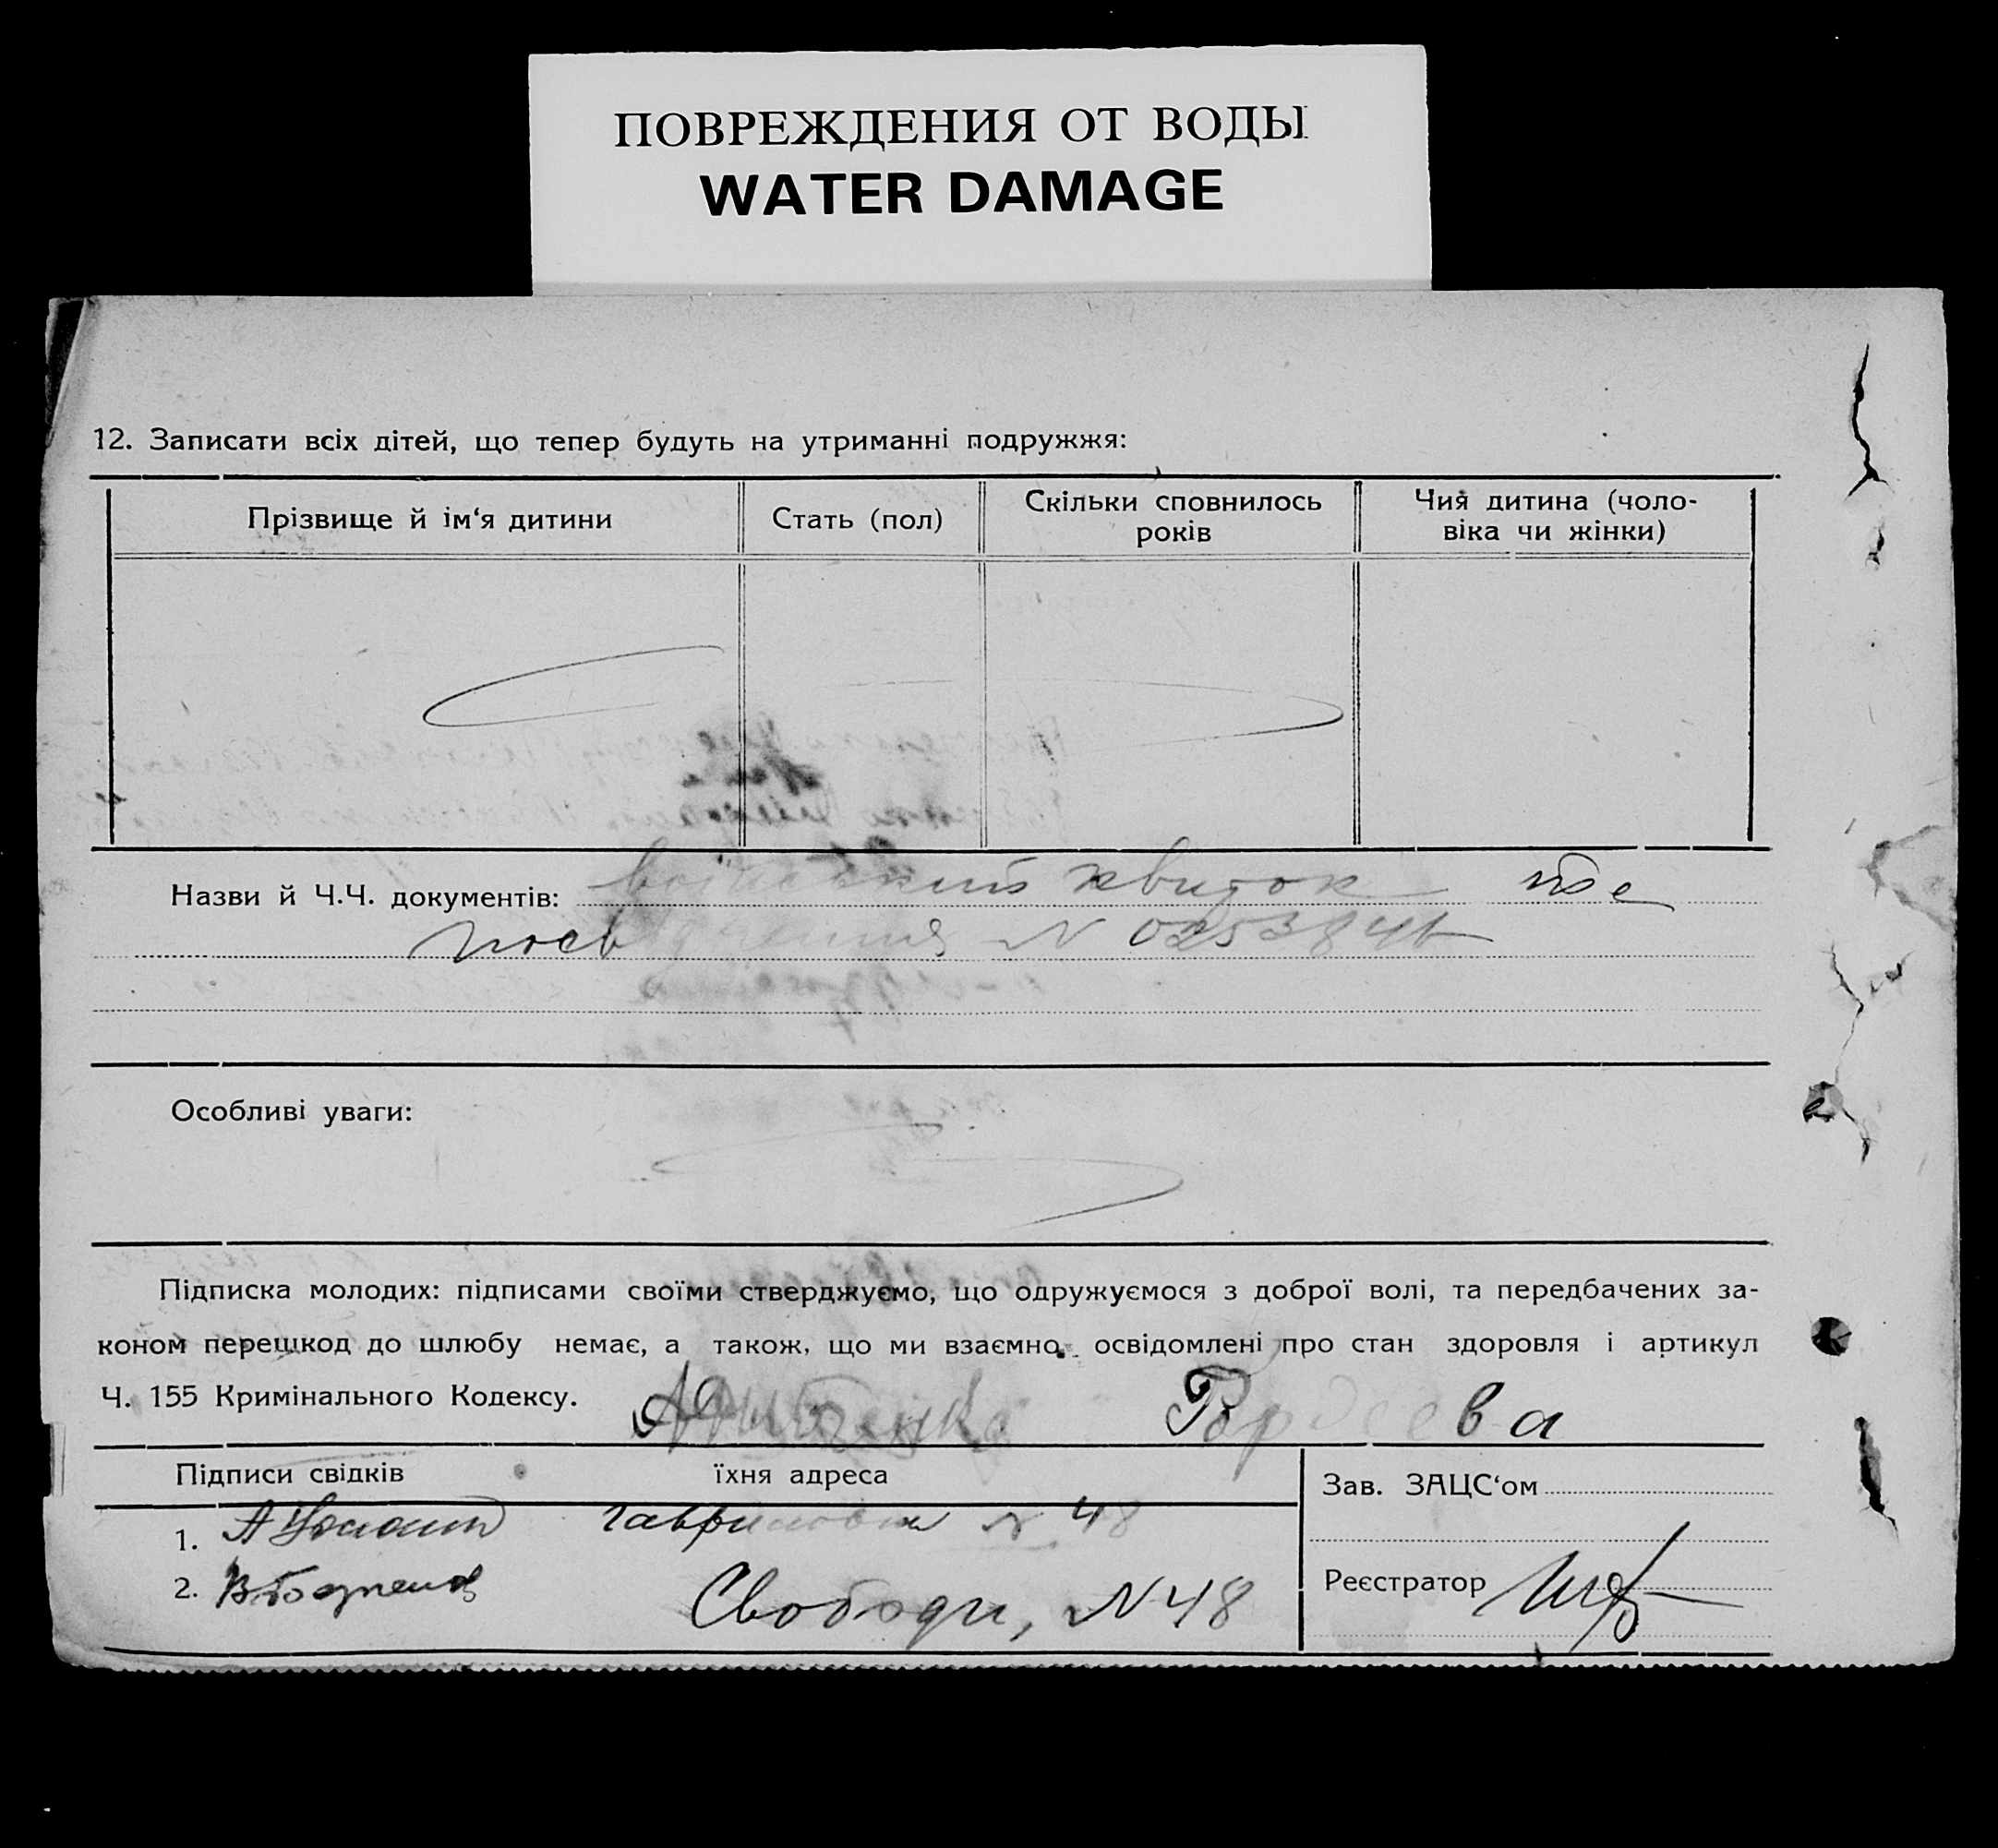 ПОВРЕЖДЕНИЯ ОТ ВОДЫ
WATER DAMAGE
12. Записати всіх дітей, що тепер будуть на утриманні подружжя:
Прізвище й ім‘я дитини
Стать (пол)
Скільки сповнилось
років
Чия дитина (чоло-
віка чи жінки)
Назви й Ч.Ч. документів: військовий квиток
посвідчення N
Особливі уваги:
Підписка молодих: підписами своїми стверджуємо, що одружуємося з доброї волі, та передбачених за-
коном перешкод до шлюбу немає, а також, що ми взаємно освідомлені про стан здоровля і артикул
Ч. 155 Кримінального Кодексу. Гордеева
Підписи свідків
їхня адреса
1. N 48
2. Свободи, N 48
Зав. ЗАЦС‘ом
Реєстратор